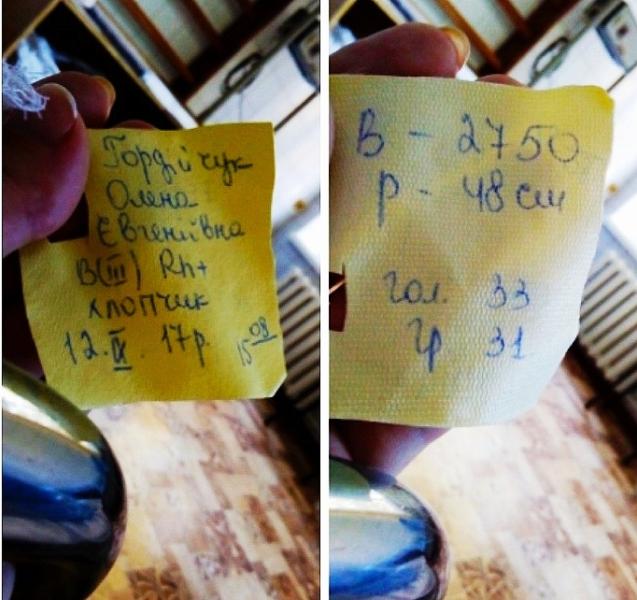 Гордійчук
Олена
Євгеніївна
В(III) Rh+
хлопчик
12.IX.17р. 15 08
В - 2750
р - 48 см
гол. 33
гр 31